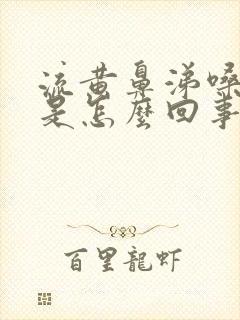 流黄鼻涕嗓
是怎麼回事
百里龍虾